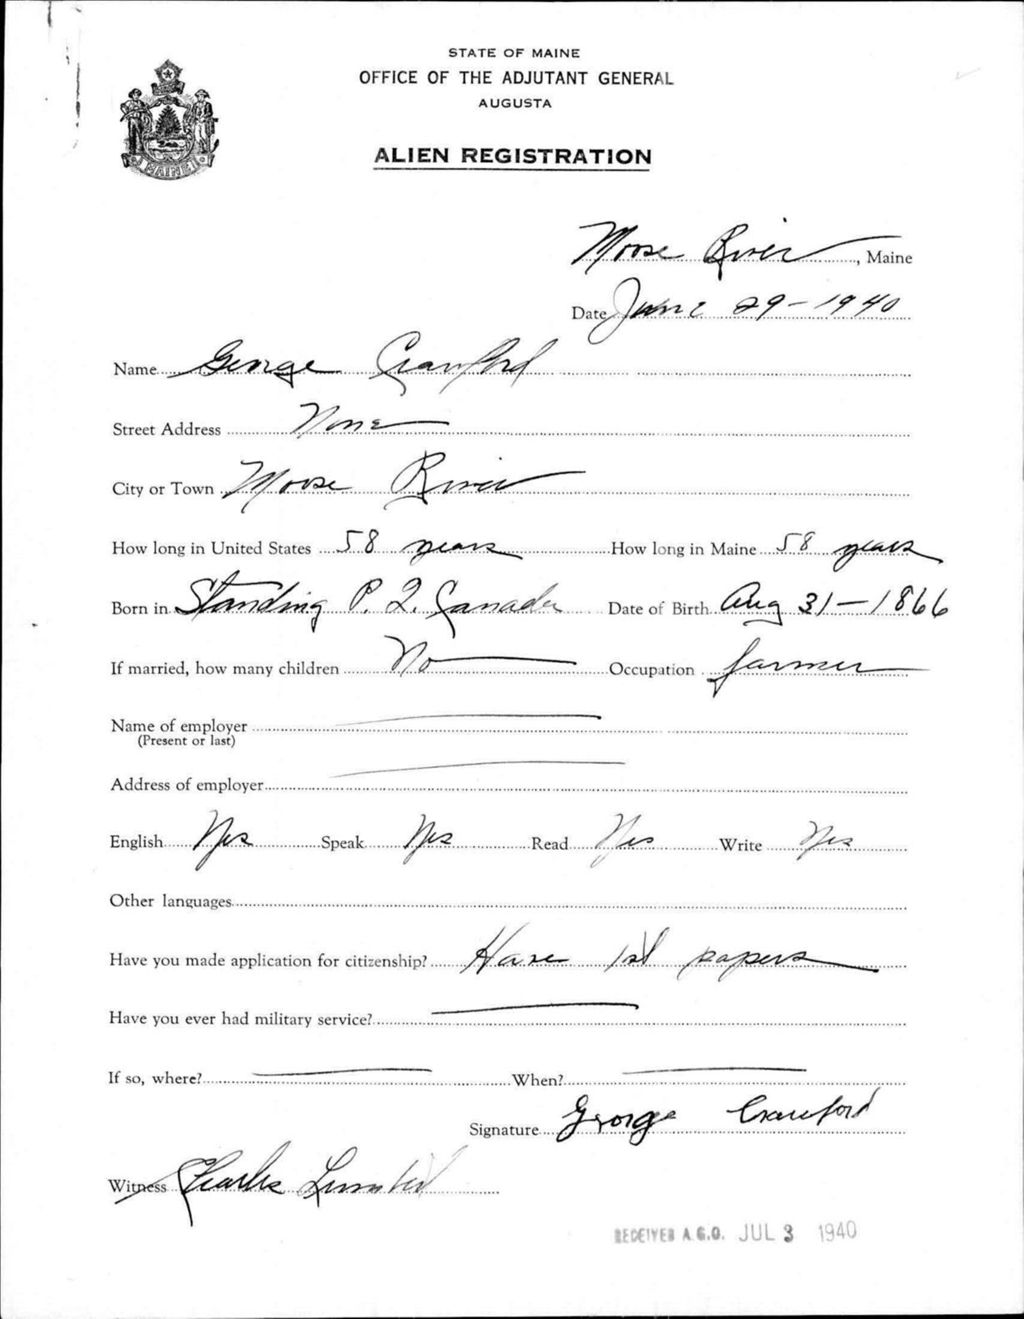 STATE OF MAINE
OFFICE OF THE ADJUTANT GENERAL
AUGUSTA
ALIEN REGISTRATION
MAINE
Moose River, Maine
Date June 29-1940
Name George Crawford
Street Address None
City or Town Moose River
How long in United States 58 years How long in Maine 58 years
Born in Standing P. Q. Canada Date of Birth Aug 31-1866
If married, how many children No Occupation farmer
Name of employer
(Present or last)
Address of employer
English Yes Speak Yes Read Yes Write Yes
Other languages
Have you made application for citizenship? Have 1st papers
Have you ever had military service?
If so, where? When?
Signature George Crawford
Witness Charles
RECEIVED A.G.O. JUL 3 1940